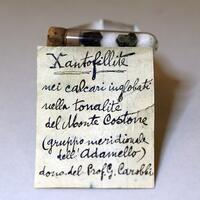 Xantofillite
nei calcari inglobati
nella tonalite
del Monte Costone
(gruppo meridionale
dell'Adamello)
dono del Prof. G. Carobbi